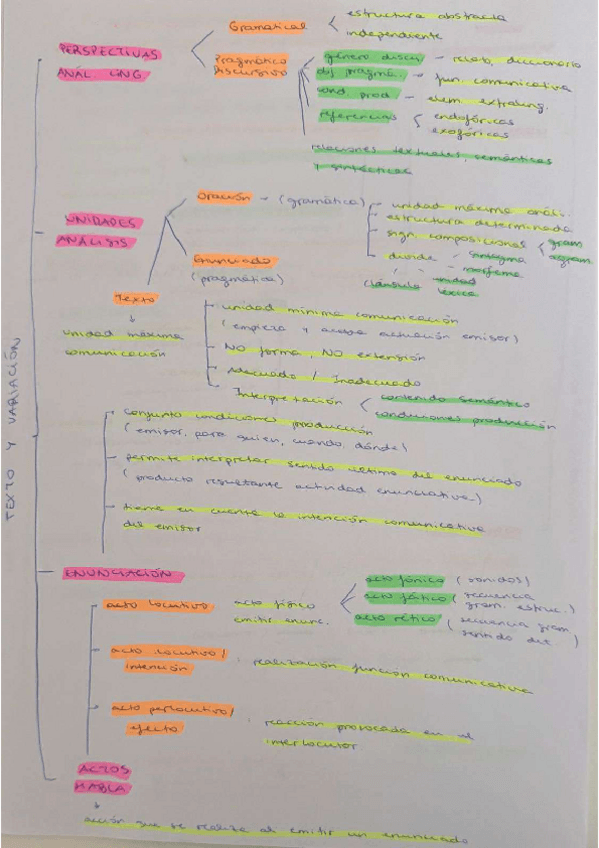 TEXTO Y VARIACIÓN
PERSPECTIVAS
ANÁL. LING
Gramatical
estructura abstracta
independiente
Pragmático
Discursivo
género discur - relato, diccionario
obj pragmá. - fun. comunicativa
cond. prod - elem. extraling.
referencias
endofóricas
exofóricas
relaciones textuales, semánticas
y sintácticas
UNIDADES
ANÁLISIS
Oración - (gramática)
unidad máxima análi.
estructura determinada
sign. composicional
gram
agram.
divide
sintagma
morfema
cláusula
unidad
léxica
Enunciado
(pragmática)
Texto
unidad máxima
comunicación
unidad mínima comunicación
(empieza y acaba actuación emisor)
NO forma, NO extensión
Adecuado / Inadecuado
Interpretación
contenido semántico
condiciones producción
conjunto condiciones producción
(emisor, para quien, cuando, dónde)
permite interpretar sentido último del enunciado
(producto resultante actividad enunciativa)
tiene en cuenta la intención comunicativa
del emisor
ENUNCIACIÓN
acto locutivo
acto físico
emitir enunc.
acto fónico (sonidos)
acto fático (secuencia
gram. estruc.)
acto rético (secuencia gram
sentido det.)
acto ilocutivo /
intención : realización función comunicativa
acto perlocutivo /
efecto : reacción provocada en el
interlocutor
ACTOS
HABLA
acción que se realiza al emitir un enunciado